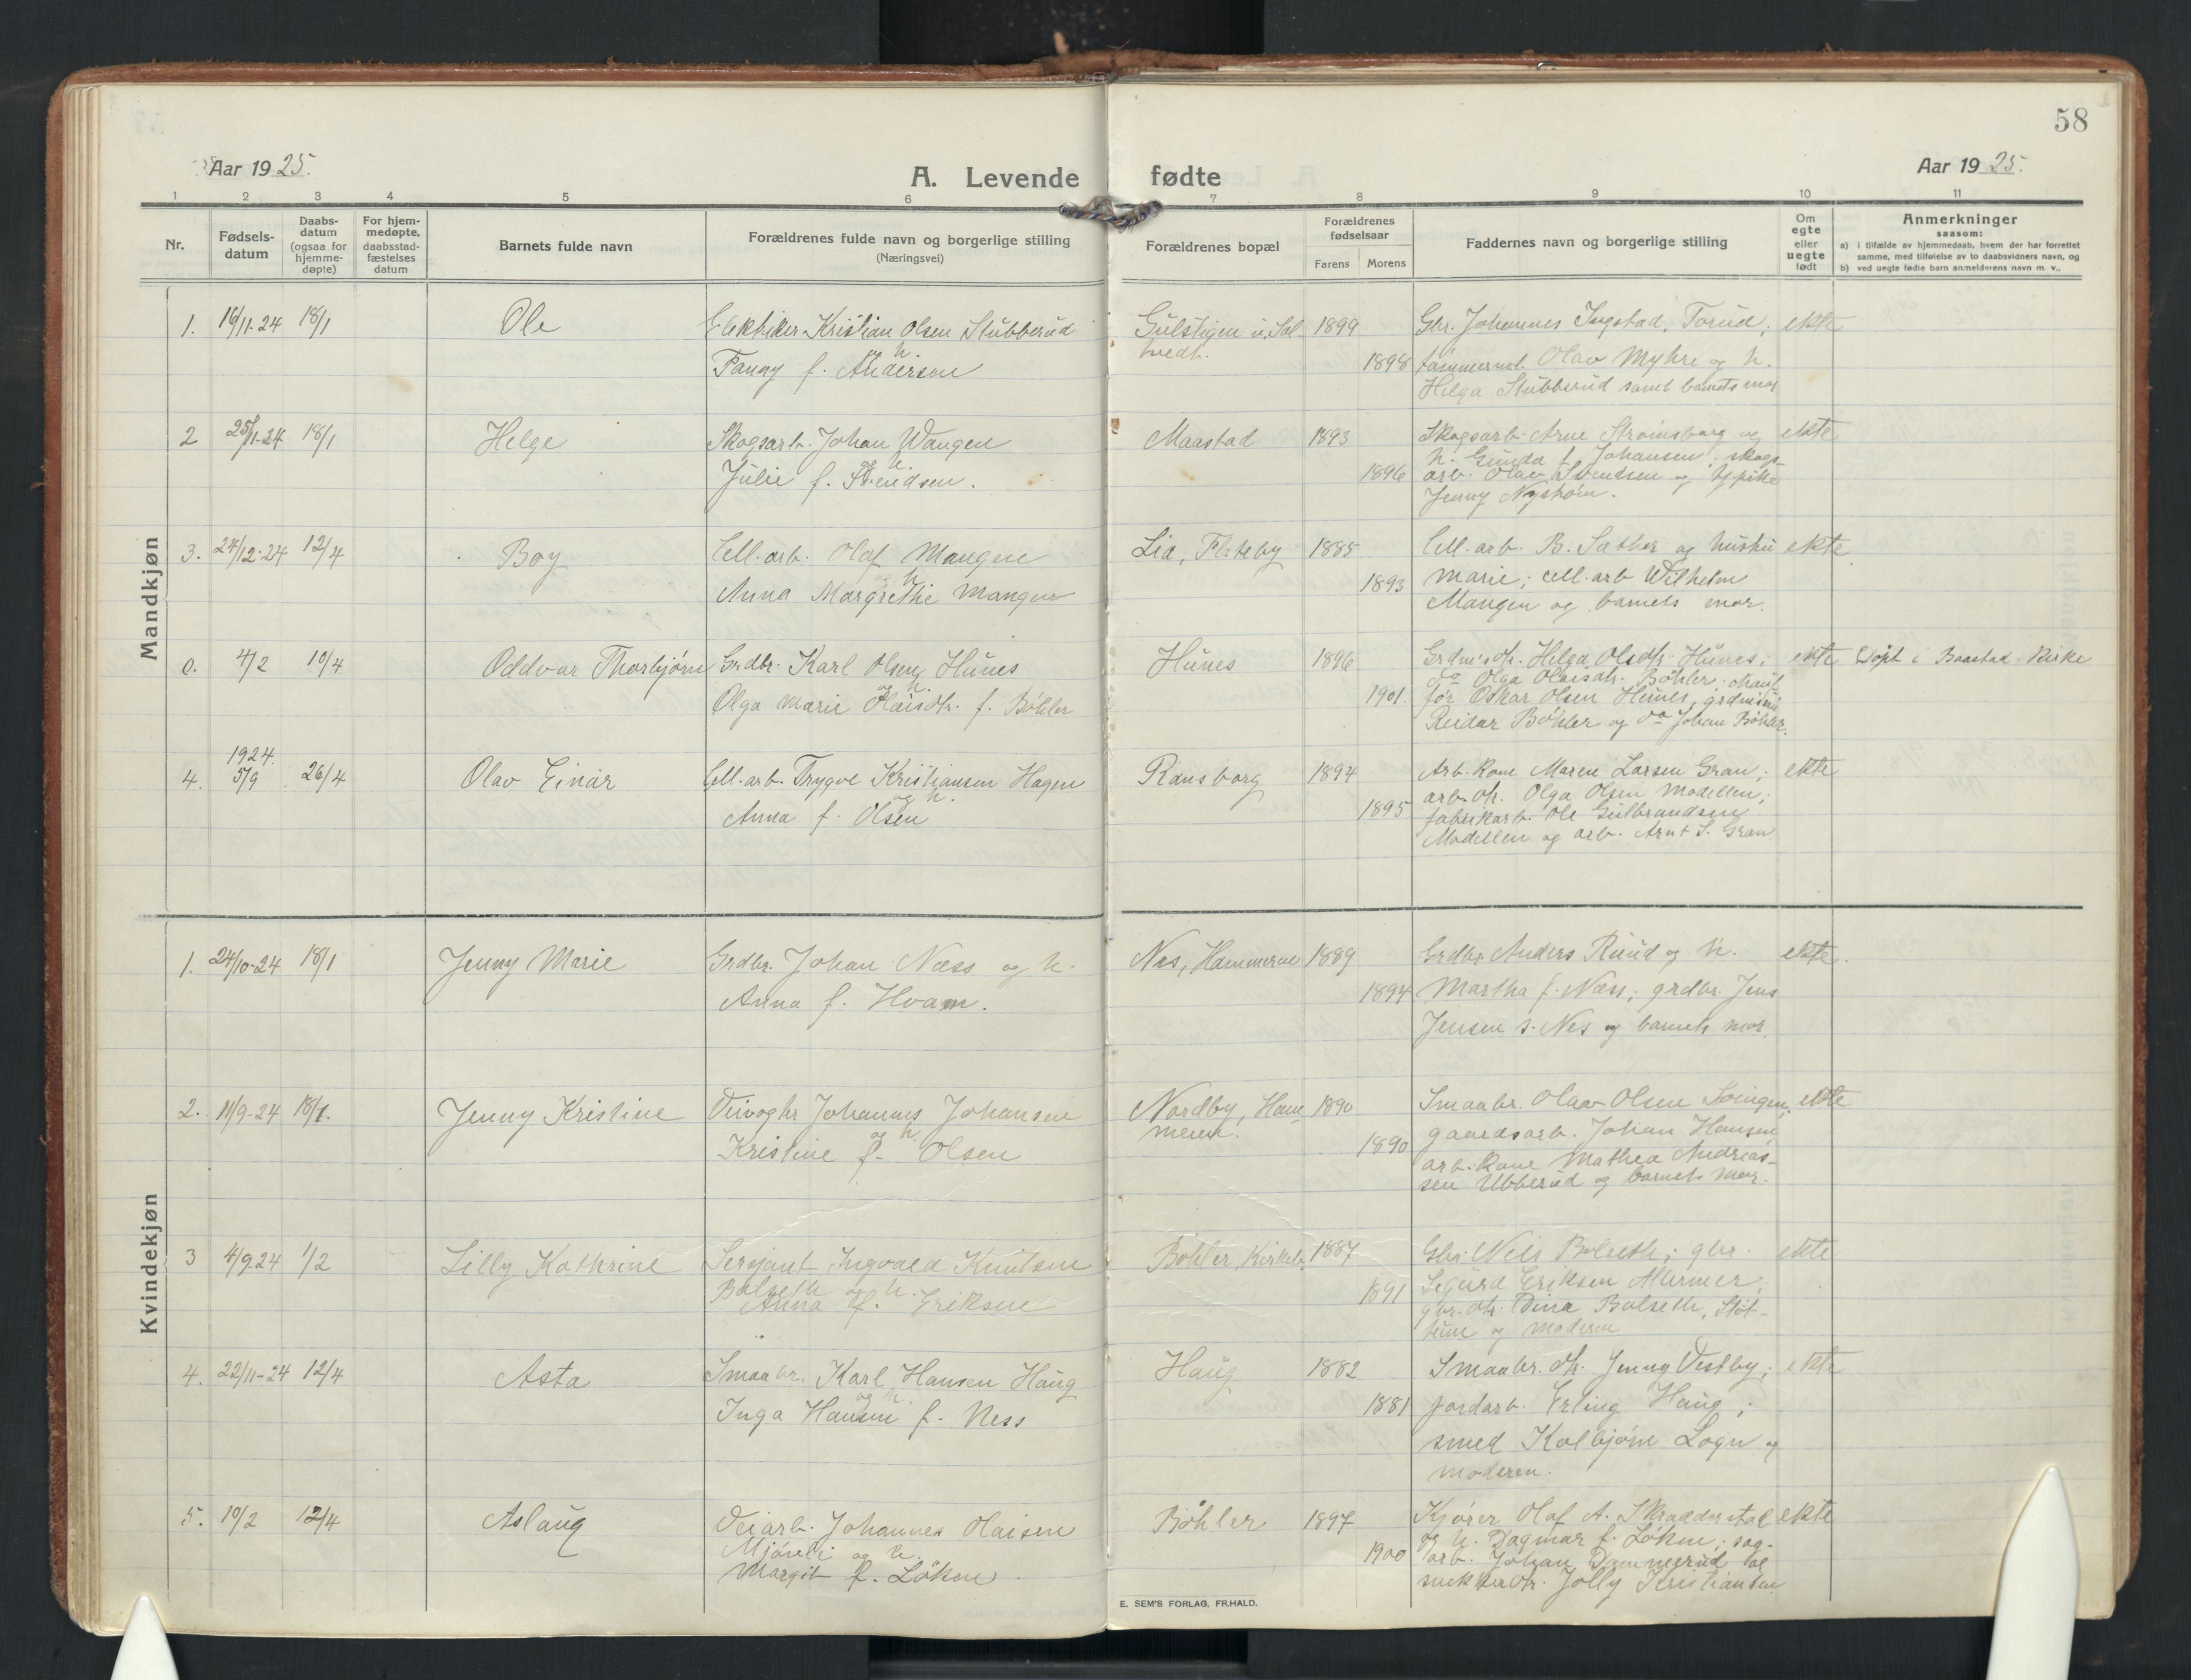 58
Aar 1925.
A. Levende fødte
Aar 1925.
1 2 3 4 5 6 7 8 9 10 11
Nr.
Fødsels-
datum
Daabs-
datum
(ogsaa for
hjemme-
døpte)
For hjem-
medøpte,
daabsstad-
fæstelses
datum
Barnets fulde navn
Forældrenes fulde navn og borgerlige stilling
(Næringsvei)
Forældrenes bopæl
Forældrenes
fødselsaar
Farens Morens
Faddernes navn og borgerlige stilling
Om
egte
eller
uegte
født
Anmerkninger
saasom:
a) i tilfælde av hjemmedaab, hvem der har forrettet
samme, med tilføielse av to daabsvidners navn, og
b) ved uegte fødte barn anmelderens navn m. v..
Mandkjøn
1. 16/11-24 18/1 Ole Elektriker Kristian Olsen Stubberud
og h.
Fanny f. Andersen
1899
1898
Gbr. Johannes Ingstad, Torud; ekte
tømmerm. Olav Myhre og h.
Helga Stubberud samt barnets mor
2 25/11-24 18/1 Helge Skogsarb. Johan Wangen
og h.
Julie f. Svendsen.
Maastad 1893
1896
Skogsarb. Arne Strømsborg og ekte
h. Gunda f. Johansen; skogs-
arb. Olav Svendsen og tj.pike
Jenny Nystrøm.
3. 24/12-24 12/4 Boy Cell.arb. Olaf Mangen
og h.
Anna Margrethe Mangen
Lia, Flateby 1885
1893
Cell.arb. B. Sæther og hustru ekte
Marie; cell.arb Wilhelm
Mangen og barnets mor.
0. 4/2 10/4 Oddvar Thorbjørn Grdbr. Karl Olsen Hunes
og h.
Olga Marie Olaisdtr. f. Bøhler
Hunes 1896
1901.
Grdm.dtr. Helga Olsdtr. Hunes; ekte Døpt i Baastad Kirke
do Olga Olaisdtr. Bøhler;
Oskar Olsen Hunes,
Reidar Bøhler og do Johan Bøhler.
4. 1924. 5/9 26/4 Olav Einar Cell.arb. Trygve Kristiansen Hagen
og h.
Anna f. Olsen
Ransborg 1894
1895
Arb.kone Maren Larsen Gran; ekte
arb.dtr. Olga Olsen Modellen;
fabrikarb. Ole Gulbrandsen
Modellen og arb. Arnt S. Gran
Kvindekjøn
1. 24/10-24 18/1 Jenny Marie Grdbr. Johan Næss og h.
Anna f. Hvam.
Nes, Hammeren 1889
1894
Grdbr. Anders Ruud og h. ekte.
Martha f. Næss; grdbr. Jens
Jensen s. Nes og barnets mor.
2. 11/9-24 18/1. Jenny Kristine Veivogtr Johannes Johansen
og h.
Kristine f. Olsen
Nordby, Ham-
meren.
1890
1890
Smaabr. Olav Olsen ekte
gaardsarb. Johan Hansen,
arb.kone Mathea Andreas-
sen Ubberud og barnets mor.
3 4/9 24 1/2 Lilly Kathrine Sersjant Ingvald Knutsen
Bolseth og h.
Anna f. Eriksen
Bøhler, Kirkeb. 1887
1891
Gbr. Nels Bolseth; gbr. ekte
Sigurd Eriksen
gbr.dtr. Dina Bolseth,
og moderen
4. 22/11-24 12/4 Asta Smaabr. Karl Hansen Haug
og h.
Inga Hansen f. Ness
Haug 1882
1881
Smaabr.dtr. Jenny Vestby; ekte
jordarb. Erling Haug;
smed Kolbjørn Logn og
moderen.
5. 10/2 12/4 Aslaug Veiarb. Johannes Olaisen
Mjøreli og h.
Margit f. Løken.
Bøhler 1897
1900
Kjører Olaf A. Skrædderstad ekte
og h. Dagmar f. Løken; sag-
arb. Johan Dammerud og
snekkerdtr. Jolly Kristiansen
E. SEM'S FORLAG, FR.HALD.